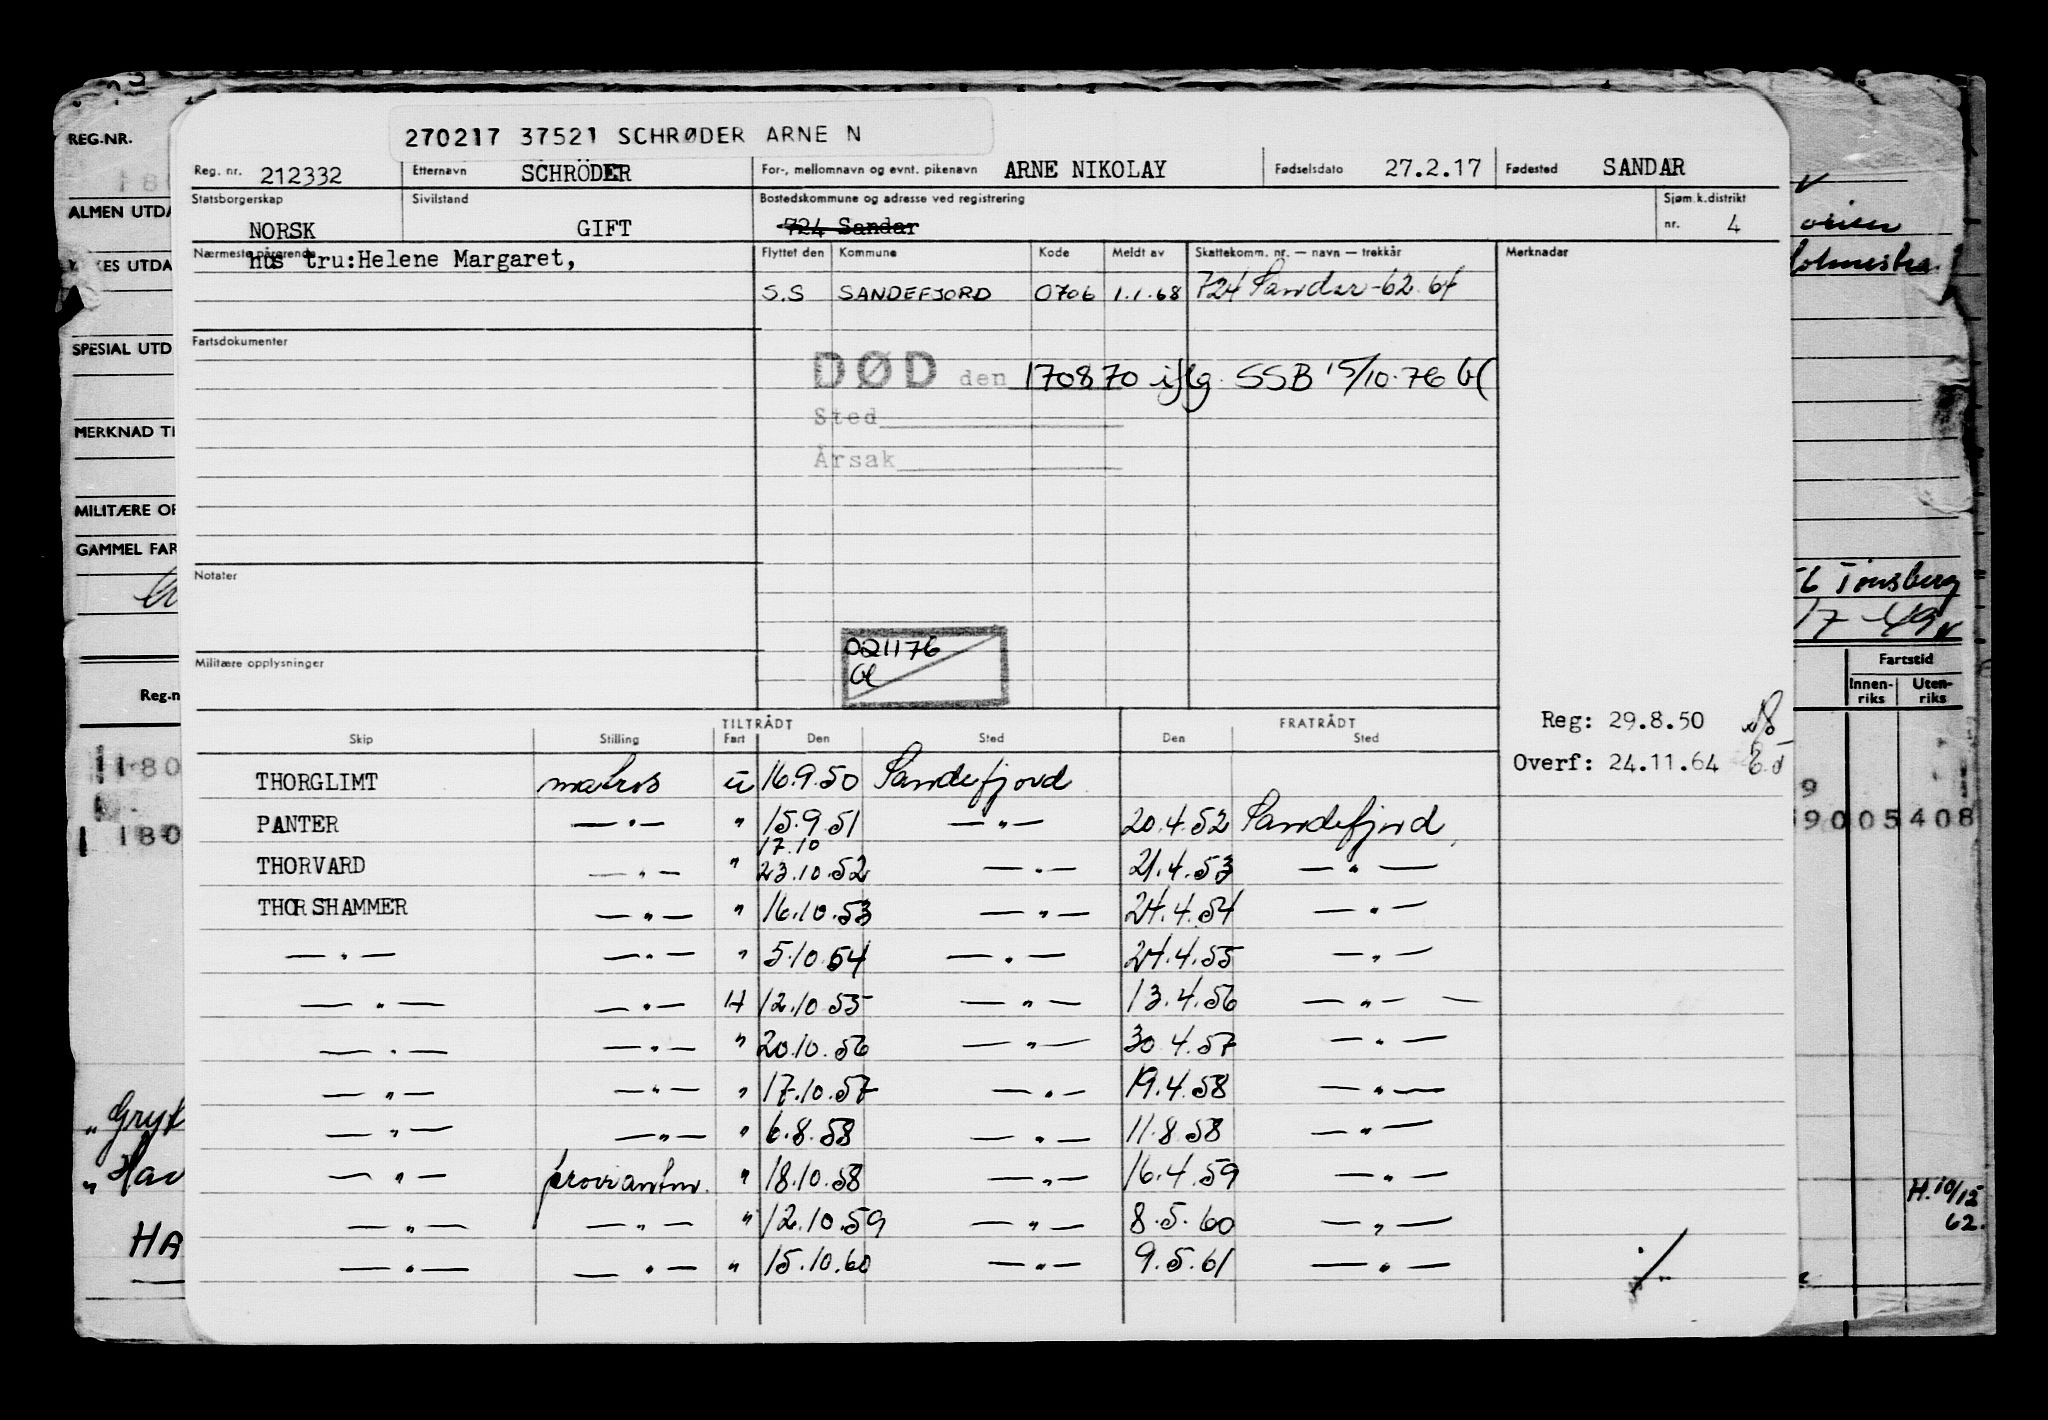 270217 37521 SCHRØDER ARNE N
REG.NR.
Reg. nr. 212332 Etternavn SCHRÖDER For-, mellomnavn og evnt. pikenavn ARNE NIKOLAY Fødselsdato 27.2.17 Fødested SANDAR
ALMEN UTDA
Statsborgerskap Sivilstand Bostedskommune og adresse ved registrering Sjøm.k.distrikt
NORSK GIFT 724 Sandar nr. 4
KES UTDA
Nærmeste pårørende hus tru:Helene Margaret, Flyttet den Kommune Kode Meldt av Skattekomm. nr. — navn — trekkår Merknader
S.S SANDEFJORD 0706 1.1.68 724 Sandar-62.64
SPESIAL UTD
Fartsdokumenter
DØD den 170870 iflg. SSB 15/10.76
Sted
Årsak
MERKNAD TI
MILITÆRE OP
GAMMEL FAR
Notater
Tønsberg
17-49
021176
Militære opplysninger
Fartstid
Innen-riks Uten-riks
Reg.n
TILTRÅDT FRATRÅDT
Skip Stilling Fart Den Sted Den Sted
Reg: 29.8.50
Overf: 24.11.64
THORGLIMT matros u 16.9.50 Sandefjord
PANTER — " — " 15.9.51 — " — 20.4.52 Sandefjord
17.10
THORVARD — " — " 23.10.52 — " — 21.4.53 — " —
THORSHAMMER — " — " 16.10.53 — " — 24.4.54 — " —
— " — — " — " 5.10.54 — " — 24.4.55 — " —
— " — — " — H 12.10.55 — " — 13.4.56 — " — —
— " — — " — " 20.10.56 — " — 30.4.57 — " —
— " — — " — " 17.10.57 — " — 19.4.58 — " —
— " — — " — " 6.8.58 — " — 11.8.58 — " —
— " — proviantm. " 18.10.58 — " — 16.4.59 — " —
— " — — " — " 12.10.59 — " — 8.5.60 — " —
— " — — " — " 15.10.60 — " — 9.5.61 — " —
1180
1180
9
9005408
"Gryt
"Hav
HA
H.10/12
62.